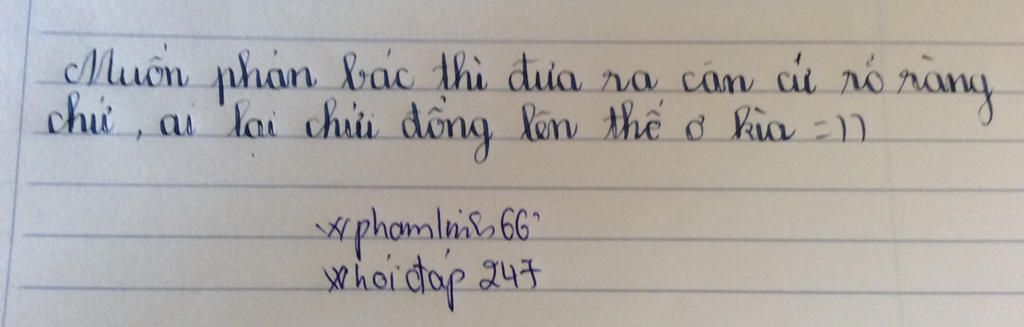 Muốn phản bác thì đưa ra căn cứ rõ ràng
chứ, ai lại chửi đổng lên thế ơ kìa =))
phamlinh66
hỏi đáp 247